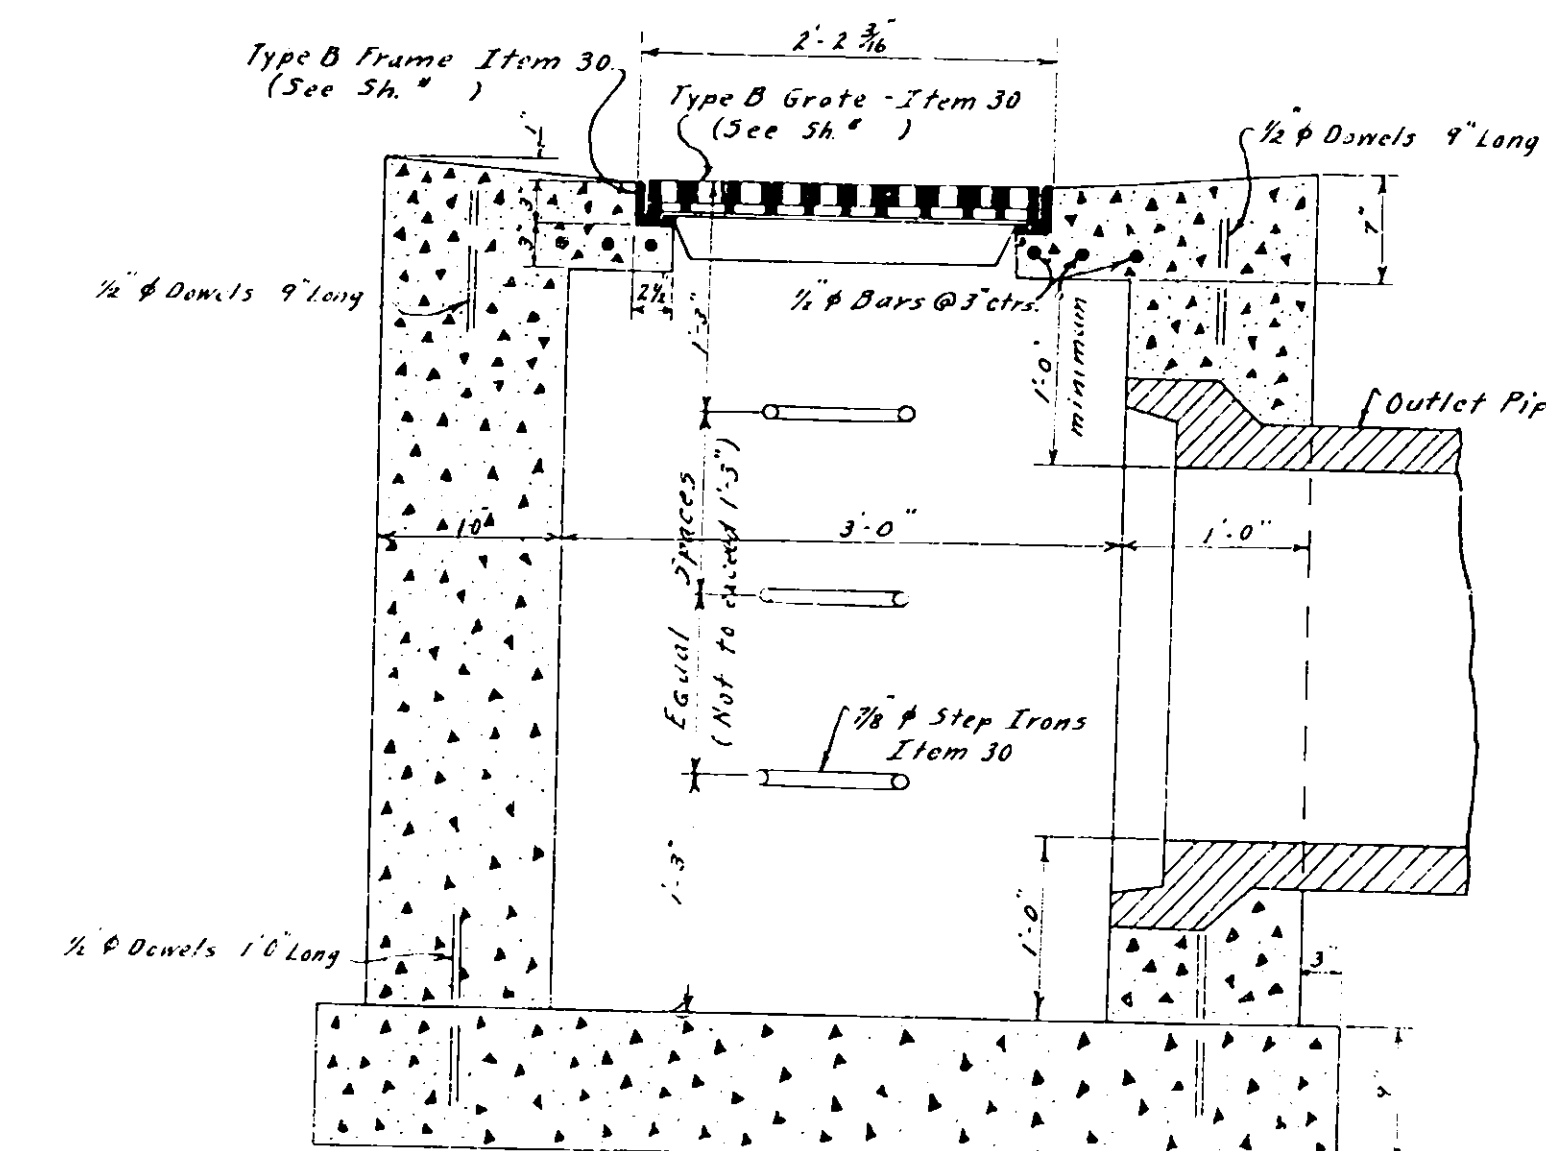 2'-2 3/16"
Type B Frame Item 30
(See Sh. " )
Type B Grate - Item 30
(See Sh. " )
1/2" φ Dowels 9" Long
1"
3"
3"
7"
1/2" φ Dowels 9" Long
2 1/2"
1'-3"
1/2" φ Bars @ 3" ctrs.
1'-0"
minimum
Outlet Pip
Equal Spaces
(Not to exceed 1'-3")
1'0"
3'-0"
1'-0"
7/8" φ Step Irons
Item 30
1'-3"
1'-0"
1/2" φ Dowels 1'0" Long
3"